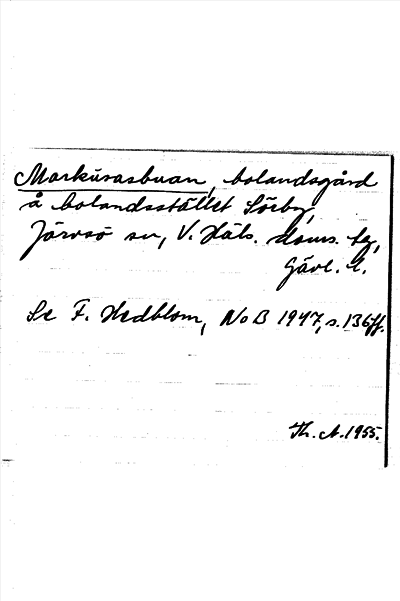 Markusasbuan, bolandsgård
å bolandsstället Sörby,
Järvsö sn, V. Häls. doms. tg,
Gävl. l.
Se F. Hedblom, NoB 1947, s. 136ff.
Th. A. 1955.